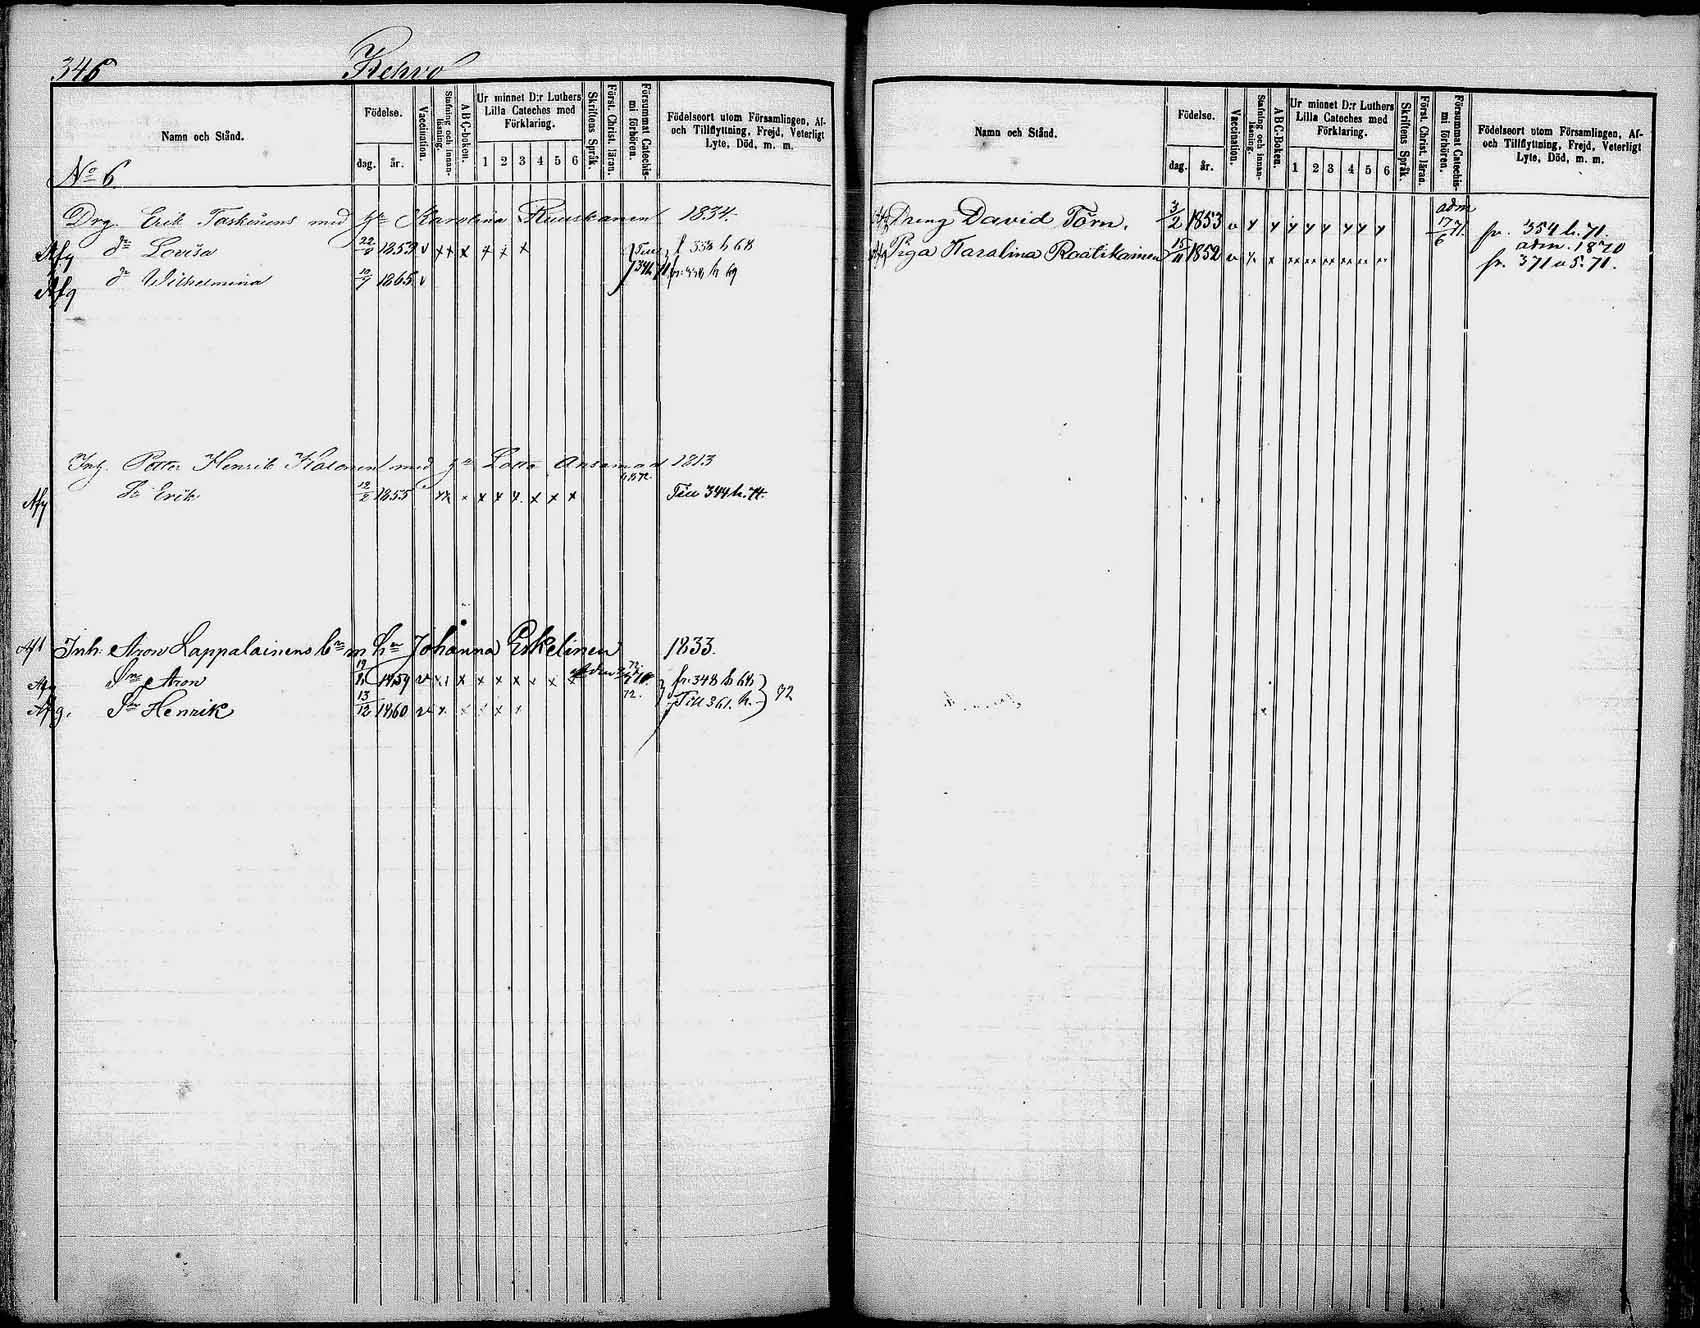 346 Rehvo
Namn och Stånd.
Födelse.
dag. år.
Vaccination.
Stafning och innanläsning.
ABC-boken.
Ur minnet D:r Luthers
Lilla Cateches med
Förklaring.
1 2 3 4 5 6
Skriftens Språk.
Först. Christ. läran.
Försummat Catechismi förhören.
Födelseort utom Församlingen, Af-
och Tillflyttning, Frejd, Veterligt
Lyte, Död, m. m.
No 6
Drg. Erik Taskinens med hu Karolina Ruuskanen 1834.
Afg dr Lovisa 1853 v x x x x x x Till f 338 h 68
Afg dr Wilhelmina 1865 v 344 71 fr. h 69
Inh. Petter Henrik med hu Lotta 1813
Afg Sn Erik 12/2 1855 x x x x x x x x Till 344 h. 71.
Afg Inh. Aron Lappalainens med hu Johanna Eskelinen 1833.
Afg Sne Aron 1859 v x x x x x x x x fr. 348 h 68
Afg. Sn Henrik 13/12 1860 v x x x x x Till 361. h. 72
Namn och Stånd.
Födelse.
dag. år.
Vaccination.
Stafning och innanläsning.
ABC-Boken.
Ur minnet D:r Luthers
Lilla Cateches med
Förklaring.
1 2 3 4 5 6
Skriftens Språk.
Först. Christ. läran.
Försummat Catechismi förhören.
Födelseort utom Församlingen, Af-
och Tillflyttning, Frejd, Veterligt
Lyte, Död, m. m.
Dreng David Törn. 3/2 1853 v x x x x x x x x adm 17/6 71. fr. 354 h. 71.
Piga Karolina Raatikainen 15/11 1852 v x x adm. 1870
fr. 371 o 5. 71.